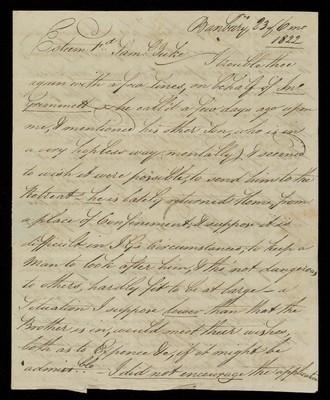 Banbury 23 of 6 mo
1822
Esteem'd Fd Saml Tuke
I trouble thee
again with a few lines, on behalf of Jno
Grimmett - he call'd a few days ago upon
me, & mentioned his other Son, who is in
a very hopless way mentally) & seemed
to wish it were possible, to send him to the
Retreat - he is lately returned Home, from
a place of Confinement, & I suppose it is
difficult in Js Circumstances, to keep a
Man to look after him, & tho' not dangerous
to others, hardly fit to be at large - a
Situation I suppose lower than that the
Brother is in, would meet their wishes,
both as to Expence &c, if it might be
admissble - I did not encourage the application